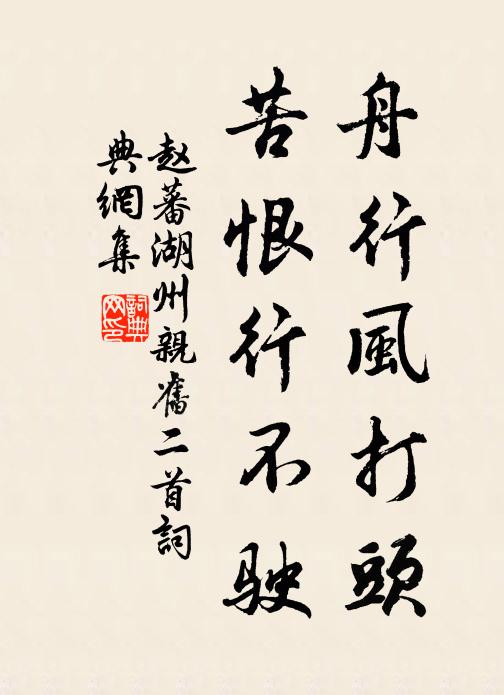 舟行風打頭
苦恨行不駛
赵蕃湖州親舊二首詞
典網集
詞典網印